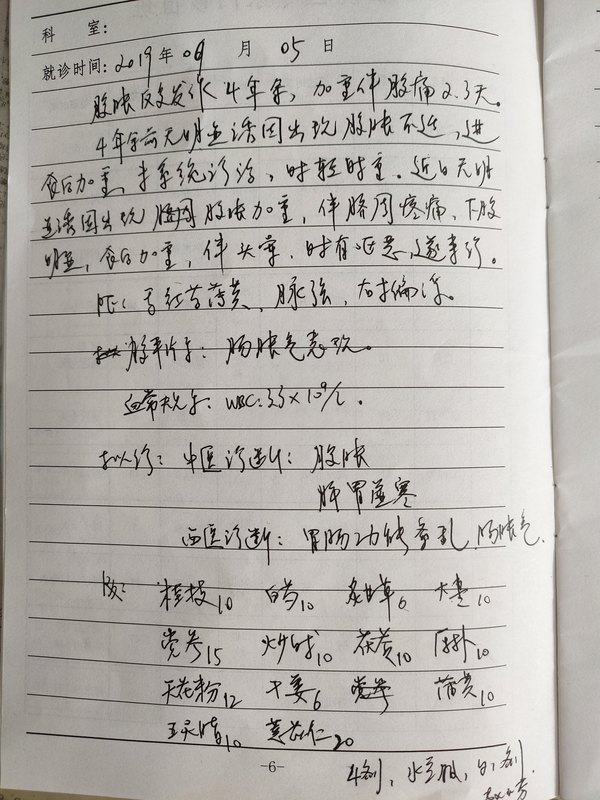 科 室：
就诊时间：2019年09月05日
腹胀反复发作4年余，加重伴腹痛2.3天。
4年余前无明显诱因出现腹胀不适，进
食后加重，未系统诊治，时轻时重。近日无明
显诱因出现腹胀加重，伴脐周疼痛，下腹
明显，食后加重，伴头晕，时有恶，遂来诊。
PE：舌红苔薄黄，脉弦，右
腹平片示：肠胀气表现。
血常规示：WBC：×10⁹/L。
拟诊：中医诊断：腹胀
脾胃虚寒
西医诊断：胃肠功能紊乱，肠胀气.
桂枝10 白芍10 炙甘草6 大枣10
党参15 炒10 茯苓10 厚朴10
天花粉12 干姜6 党参 蒲黄10
五灵脂10 薏苡仁20
-6-
4剂，水煎服，日1剂